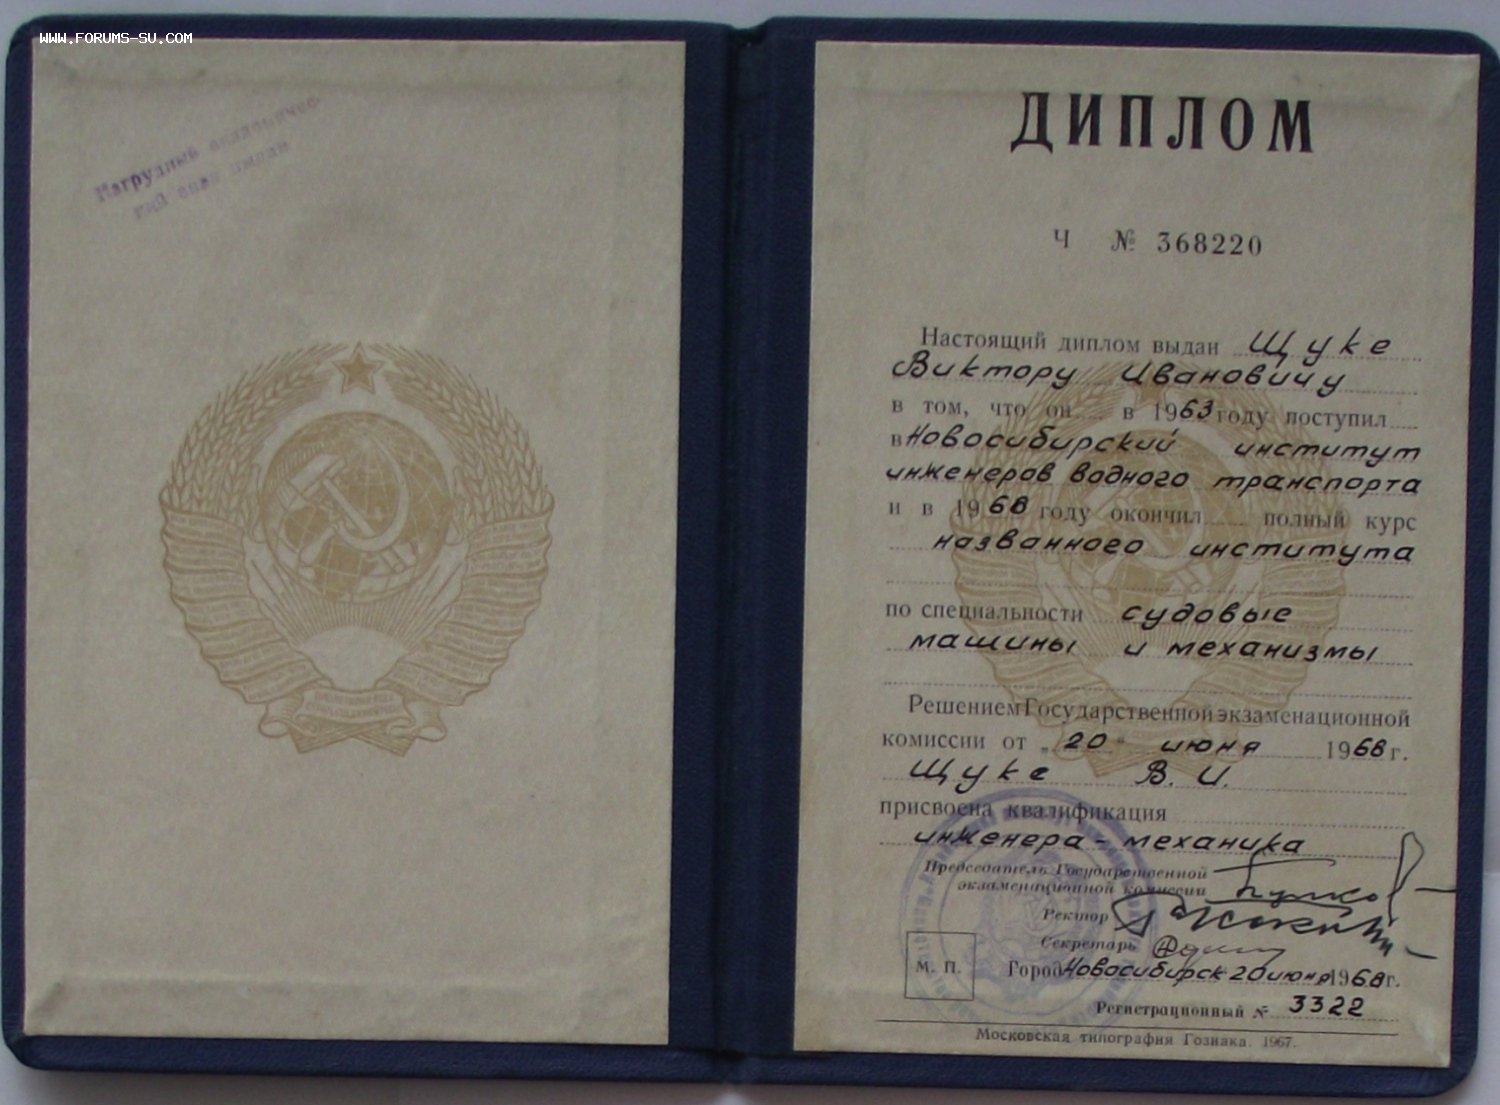 WWW.FORUMS-SU.COM
Нагрудный академичес-
кий знак выдан
ДИПЛОМ
Ч № 368220
Настоящий диплом выдан Щуке
Виктору Ивановичу
в том, что он в 1963 году поступил
в Новосибирский институт
инженеров водного транспорта
и в 1968 году окончил полный курс
названного института
по специальности судовые
машины и механизмы
Решением Государственной экзаменационной
комиссии от „20" июня 1968 г.
Щуке В. И.
присвоена квалификация
инженера-механика
Председатель Государственной
экзаменационной комиссии
Ректор
Секретарь
М. П.
Город Новосибирск 20 июня 1968 г.
Регистрационный № 3322
Московская типография Гознака. 1967.